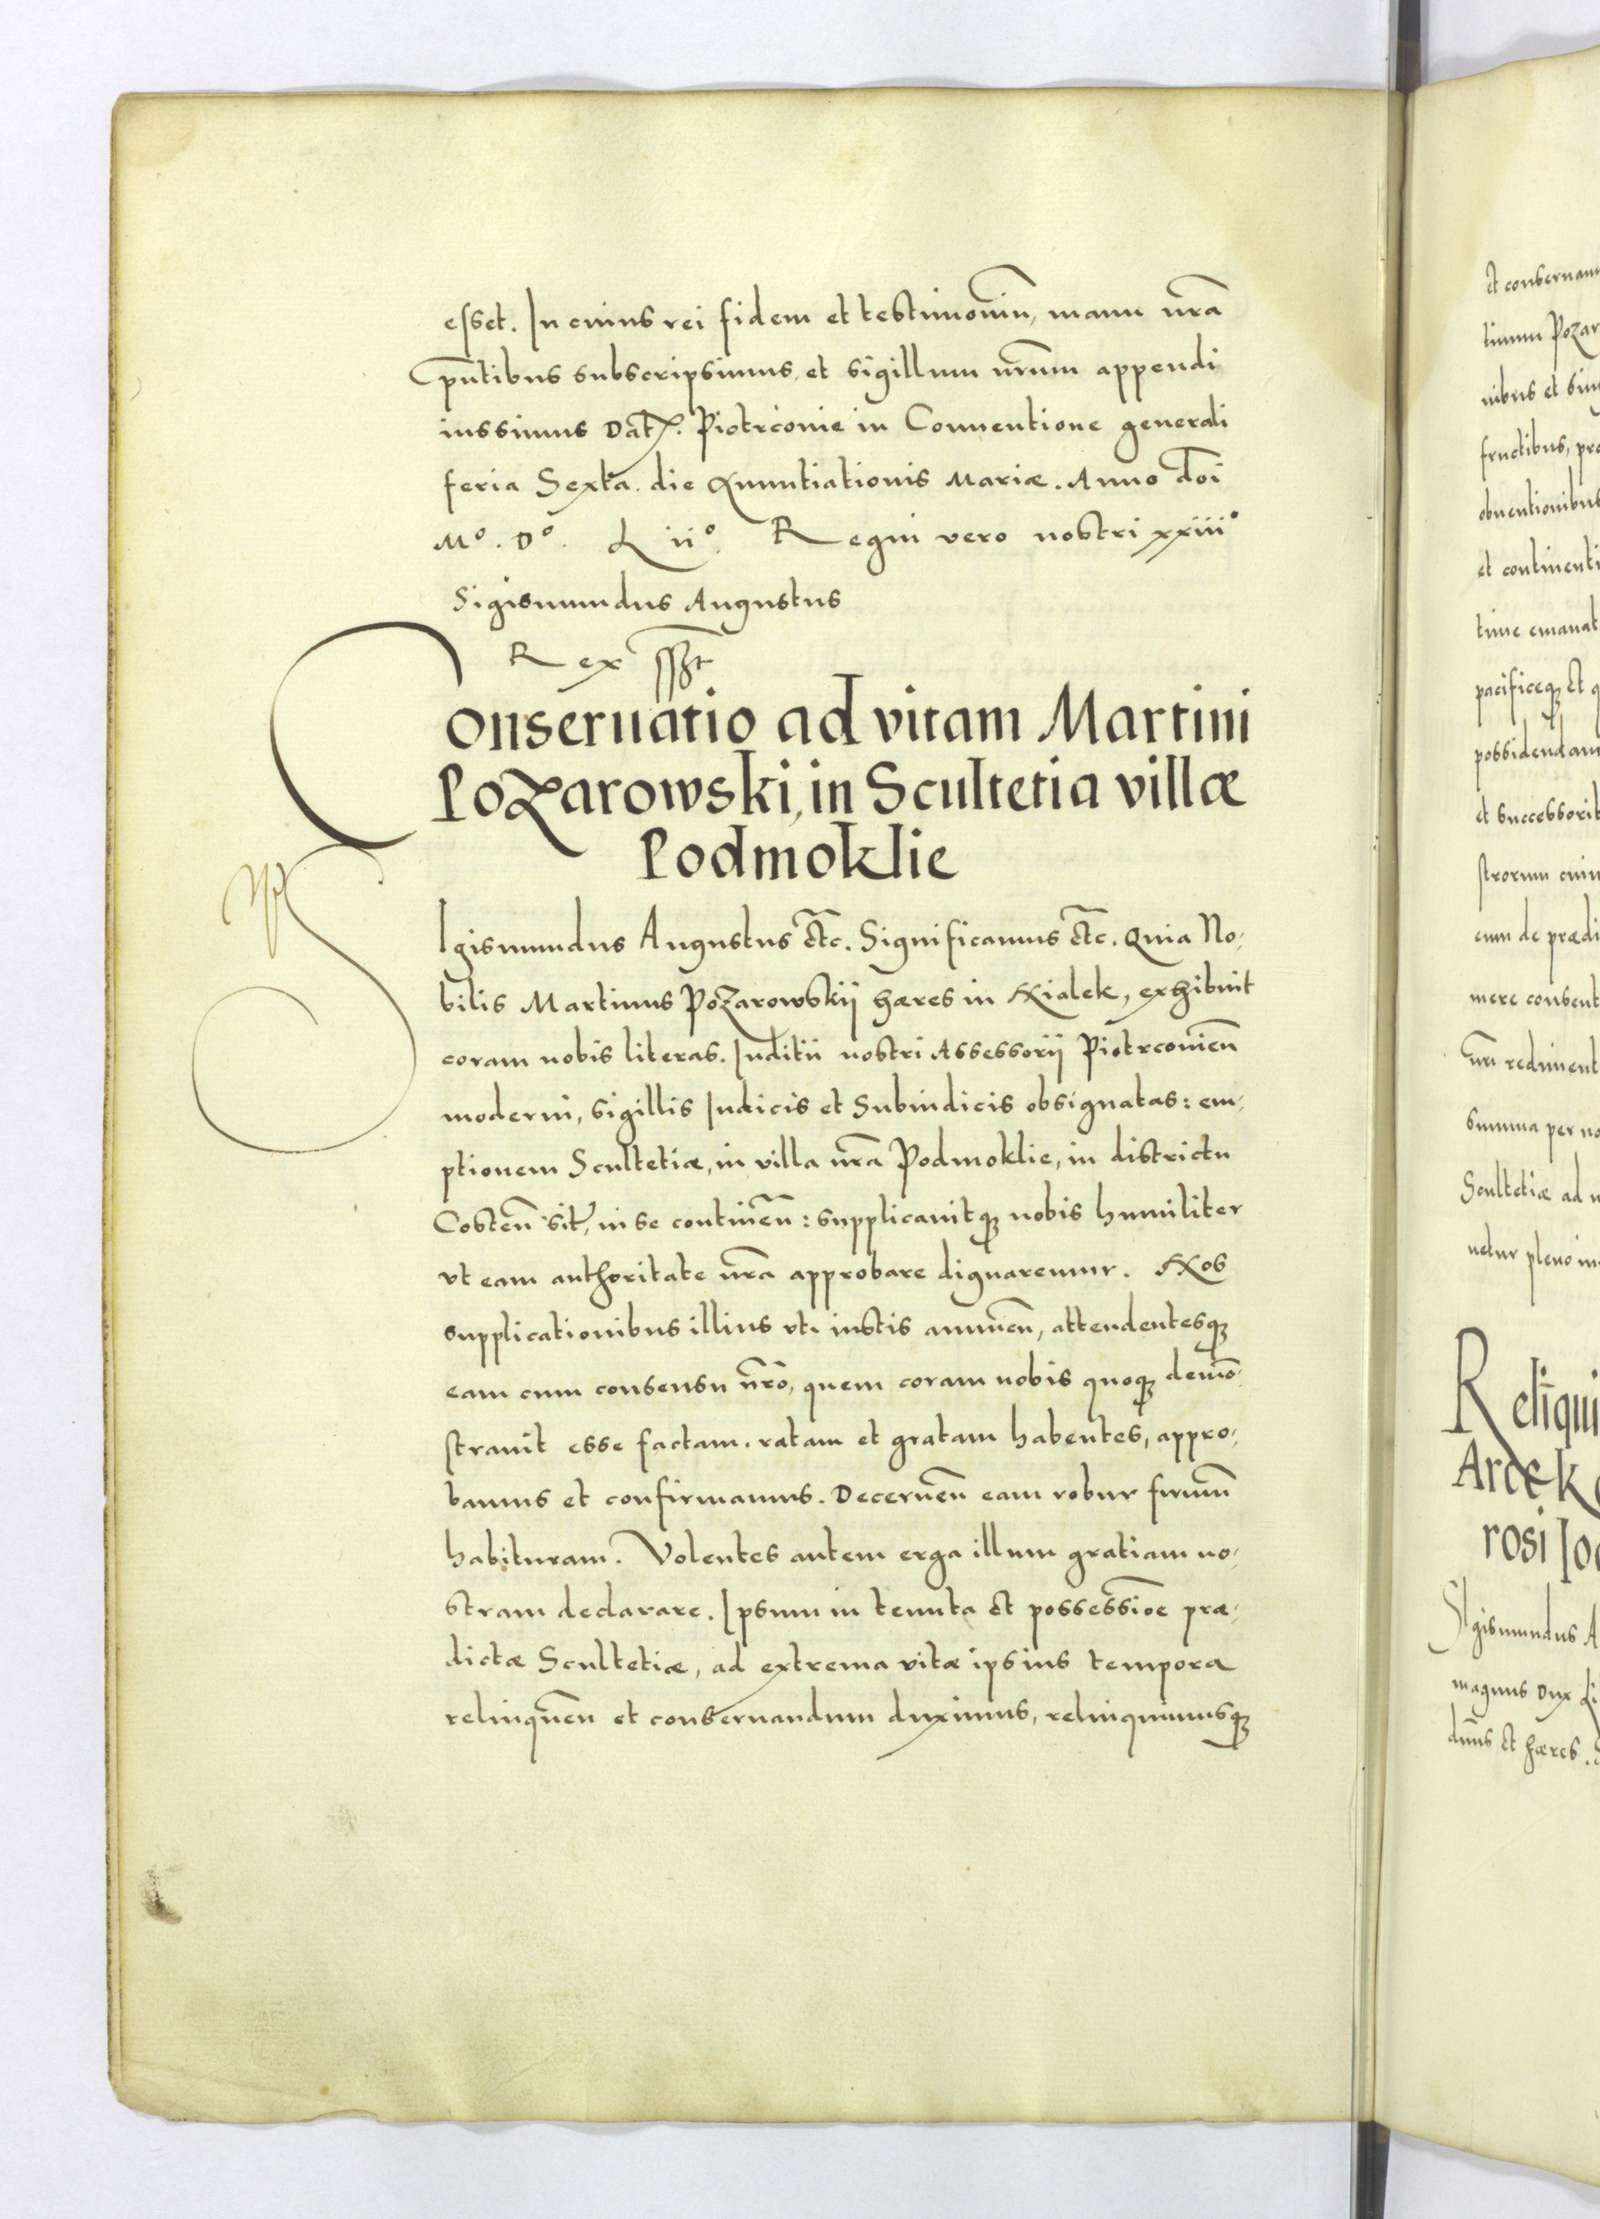 esset. In cuius rei fidem et testimoniũ, manu nr̃a
Pñtibus subscripsimus, et sigillum nr̃um appendi
iussimus Dat. Piotrconie in Conuentione generali
feria Sexta. die Annuntiationis Mariæ. Anno Dñi
Mº. Dº. L iiº. Regni vero nostri xxiiiº
Sigismundus Augustus
Rex sszt
Conseruatio ad vitam Martini
Pozarowski, in Scultetia villæ
Podmoklie
SIgismundus Augustus etc̃. Significamus etc̃. Quia No-
bilis Martinus Pozarowskij hæres in Kialek, exhibuit
coram nobis literas. Iuditii nostri Assessorij Piotrconieñ
moderni, sigillis Iudicis et Subiudicis obsignatas: em-
ptionem Scultetiæ, in villa nr̃a Podmoklie, in districtu
Costeñ sit, in se contineñ: supplicauitq nobis humiliter
vt eam authoritate nr̃a approbare dignaremur. Nos
supplicationibus illius vti iustis annueñ, attendentesq
eam cum consensu nr̃o, quem coram nobis quoq demõ-
strauit esse factam. ratam et gratam habentes, appro-
bamus et confirmamus. Decerneñ eam robur firmũ
habituram. Volentes autem erga illum gratiam no-
stram declarare. Ipsum in tenuta et possessiõe præ-
dictæ Scultetiæ, ad extrema vitæ ipsius tempora
relinqueñ et conseruandum duximus, relinquimusq
et conseruam
tinum Pozar
nibus et sin
fructibus, pro
obuentionibus
et continenti
time emanat
pacificeq et q
possidendam
et successorib
strorum cuiu
eum de prædi
mere consent
nr̃i rediment
summa per no
Scultetiæ ad u
uetur pleno in
Reliqui
Arcek
rosi Io
SIgismundus A
magnus Dux Li
dñus et hæres.